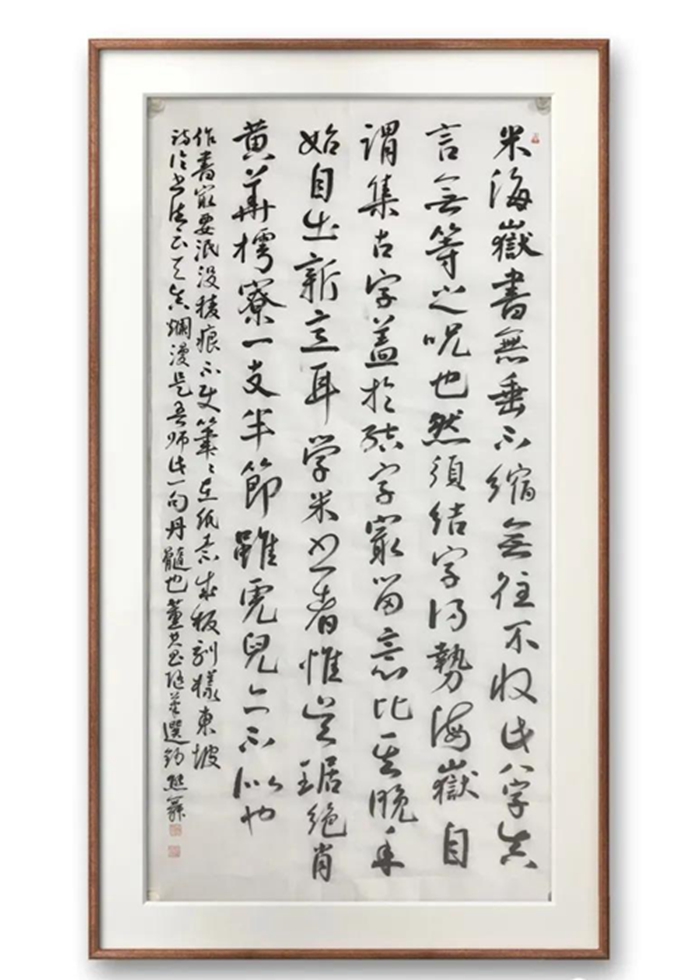 米海嶽書無垂不縮無往不收此八字真
言無等之呪也然須結字得勢海嶽自
謂集古字蓋於結字最留意比其晚年
始自出新意耳学米书者惟吳琚絕肖
黄華樗寮一支半節雖虎兒亦不似也
作書最要泯没稜痕不使筆々在紙素成板刻樣東坡
詩论书法云天真爛漫是吾師此一句丹髓也董其昌随筆選鈔